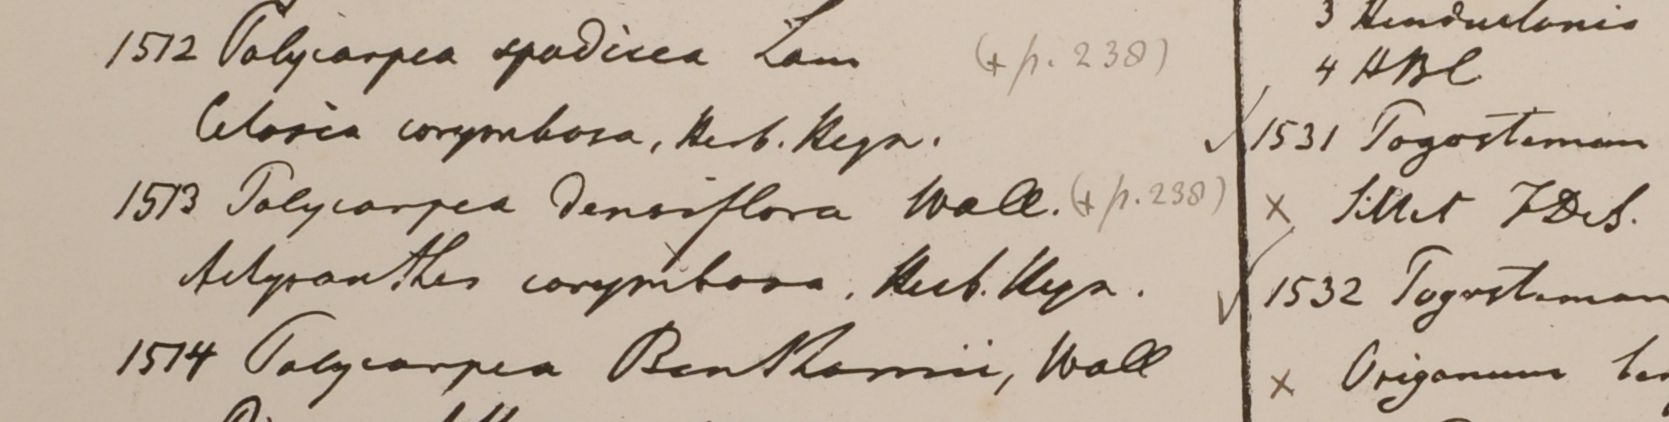 1512 Polycarpea spadicea Lam (+ p. 238)
Celosia corymbosa, Herb. Heyn.
1513 Polycarpea densiflora Wall. (+ p. 238)
Achyranthes corymbosa. Herb. Heyn.
1514 Polycarpea Benthamii, Wall
3 Hindustania
4 HBC
1531 Pogostemon
x Sillet FDeS.
1532 Pogostemon
x Origanum